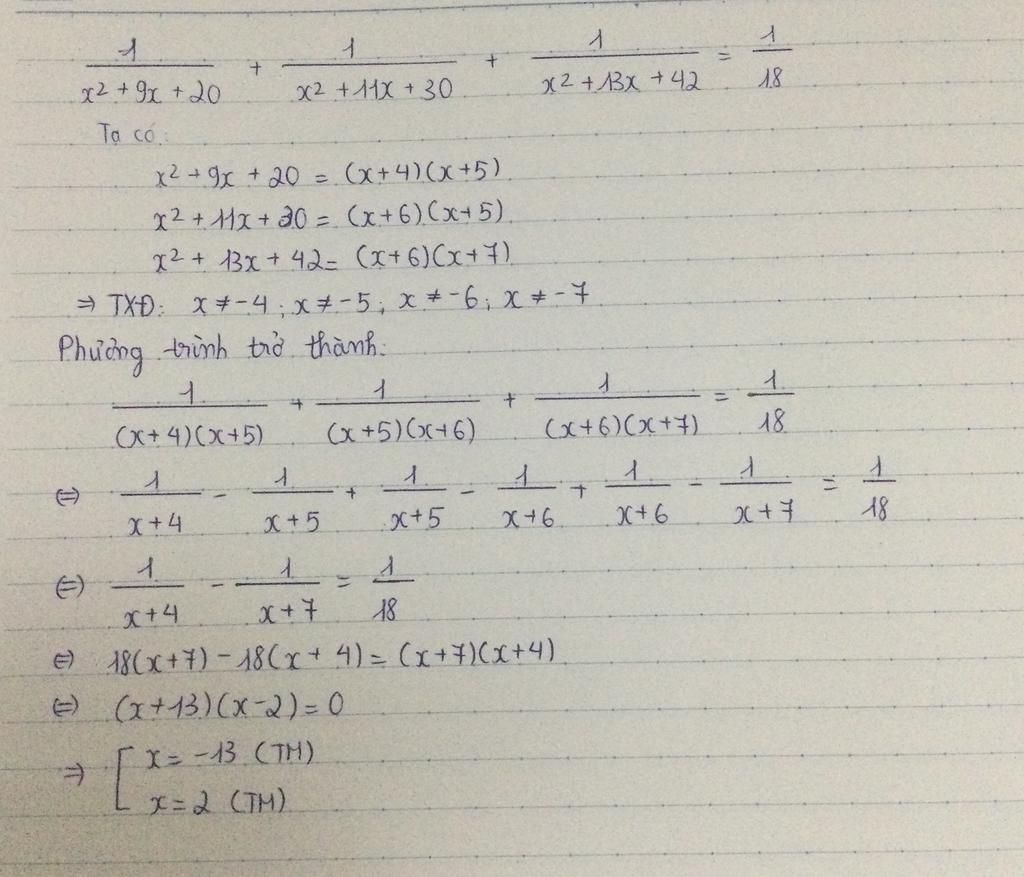 1/(x² + 9x + 20) + 1/(x² + 11x + 30) + 1/(x² + 13x + 42) = 1/18
Ta có:
x² + 9x + 20 = (x+4)(x+5)
x² + 11x + 30 = (x+6)(x+5)
x² + 13x + 42 = (x+6)(x+7)
⇒ TXĐ: x ≠ -4 ; x ≠ -5 ; x ≠ -6 ; x ≠ -7
Phương trình trở thành:
1/((x+4)(x+5)) + 1/((x+5)(x+6)) + 1/((x+6)(x+7)) = 1/18
⇔ 1/(x+4) - 1/(x+5) + 1/(x+5) - 1/(x+6) + 1/(x+6) - 1/(x+7) = 1/18
⇔ 1/(x+4) - 1/(x+7) = 1/18
⇔ 18(x+7) - 18(x+4) = (x+7)(x+4)
⇔ (x+13)(x-2) = 0
⇒ [ x = -13 (TM)
x = 2 (TM)